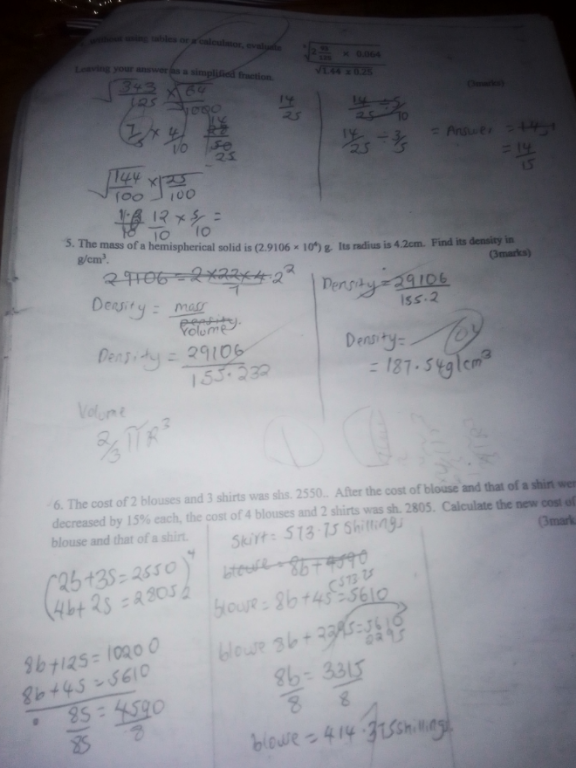 without using tables or a calculator, evaluate
× 0.064
√1.44 × 0.25
Leaving your answer as a simplified fraction.
(3marks)
√343/125 × √64/1000
7/5 × 4/10
14/25
14/25 ÷ 3/5
= Answer =
= 14/15
√144/100 × √25/100
12/10 × 5/10 =
5. The mass of a hemispherical solid is (2.9106 × 10⁴) g. Its radius is 4.2cm. Find its density in
g/cm³.
(3marks)
Density = mass
Volume
Density = 29106
155.232
Volume
2/3 π R³
Density = 29106
155.2
Density =
= 187.54g/cm³
6. The cost of 2 blouses and 3 shirts was shs. 2550.. After the cost of blouse and that of a shirt were
decreased by 15% each, the cost of 4 blouses and 2 shirts was sh. 2805. Calculate the new cost of
blouse and that of a shirt.
(3mark
(2b+3s=2550)⁴
(4b+2s=2805)2
8b+12s=10200
8b+4s=5610
8s = 4590
8s 8
Skirt= 573.75 Shillings
blouse = 8b+4590
(573.75
blouse = 8b+4s=5610
blouse 8b+2295=5610
2295
8b = 3315
8 8
blouse = 414.375shillings